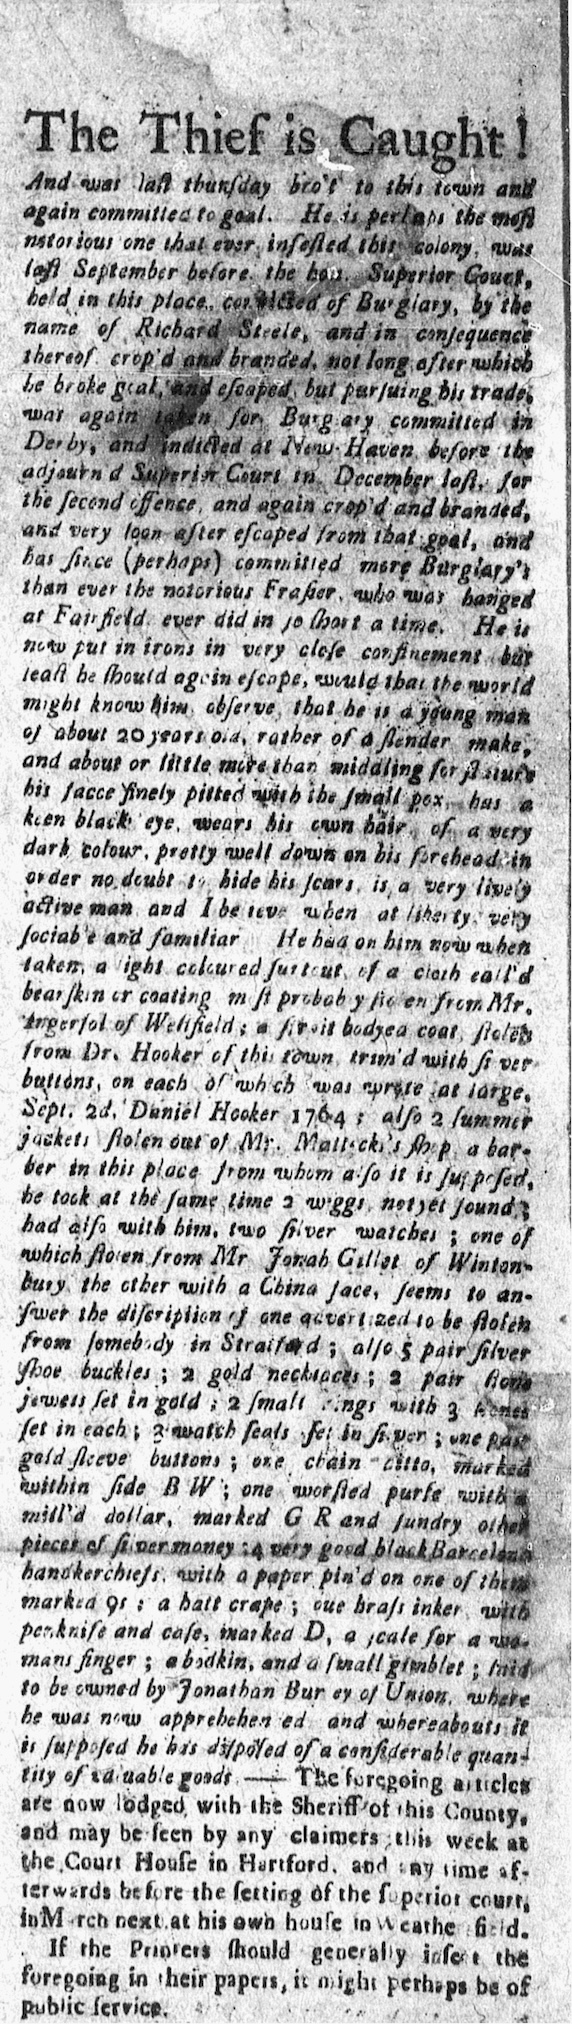 The Thief is Caught!
And was laſt thurſday bro't to this town and
again committed to goal. He is perhaps the moſt
notorious one that ever infeſted this colony, was
laſt September before the hon. Superior Court,
held in this place, convicted of Burglary, by the
name of Richard Steele, and in conſequence
thereof crop'd and branded, not long after which
he broke goal, and eſcaped, but purſuing his trade,
was again taken for Burglary committed in
Derby, and indicted at New-Haven before the
adjourn'd Superior Court in December laſt, for
the ſecond offence, and again crop'd and branded,
and very ſoon after eſcaped from that goal, and
has ſince (perhaps) committed more Burglary's
than ever the notorious Fraſier, who was hanged
at Fairfield ever did in ſo ſhort a time. He is
now put in irons in very cloſe confinement but
leaſt he ſhould again eſcape, would that the world
might know him, obſerve, that he is a young man
of about 20 years old, rather of a ſlender make,
and about or little more than middling for ſtature
his facce finely pitted with the ſmall pox, has a
keen black eye, wears his own hair, of a very
dark colour, pretty well down on his forehead in
order no doubt to hide his ſcars, is a very lively
active man and I beleve when at liberty very
ſociable and familiar He had on him now when
taken, a light coloured ſurtout, of a cloth call'd
bearſkin or coating moſt probably ſtolen from Mr.
Ingerſol of Weſtfield; a ſtrait bodyed coat, ſtolen
from Dr. Hooker of this town, trim'd with ſilver
buttons, on each of which was wrote at large,
Sept. 2d, Daniel Hooker 1764; alſo 2 ſummer
jackets ſtolen out of Mr. ſhop a bar-
ber in this place from whom alſo it is ſuppoſed,
he took at the ſame time 2 wiggs, not yet found;
had alſo with him, two ſilver watches; one of
which ſtolen from Mr Jonah Gillet of Winton-
bury the other with a China face, ſeems to an-
ſwer the diſcription of one advertized to be ſtolen
from ſomebody in Stratford; alſo 5 pair ſilver
ſhoe buckles; 2 gold necklaces; 2 pair ſtone
jewels ſet in gold; 2 ſmall rings with 3 ſtones
ſet in each; 2 watch ſeals ſet in ſilver; one pair
gold ſleeve buttons; one chain ditto, marked
within ſide B W; one worſted purſe with a
mill'd dollar, marked G R and ſundry other
pieces of ſilver money; 4 very good black Barcelona
handkerchiefs, with a paper pin'd on one of them
marked 9s; a hatt crape; one braſs inker, with
penknife and caſe, marked D, a ſcale for a wo-
mans finger; a bodkin, and a ſmall gimblet; ſaid
to be owned by Jonathan of Union, where
he was now apprehehended and whereabouts it
is ſuppoſed he has diſpoſed of a conſiderable quan-
tity of valuable goods —— The foregoing articles
are now lodged with the Sheriff of this County,
and may be ſeen by any claimers this week at
the Court Houſe in Hartford, and any time af-
terwards before the ſetting of the ſuperior court,
in March next at his own houſe in Weathersfield.
If the Printers ſhould generally inſert the
foregoing in their papers, it might perhaps be of
public ſervice.